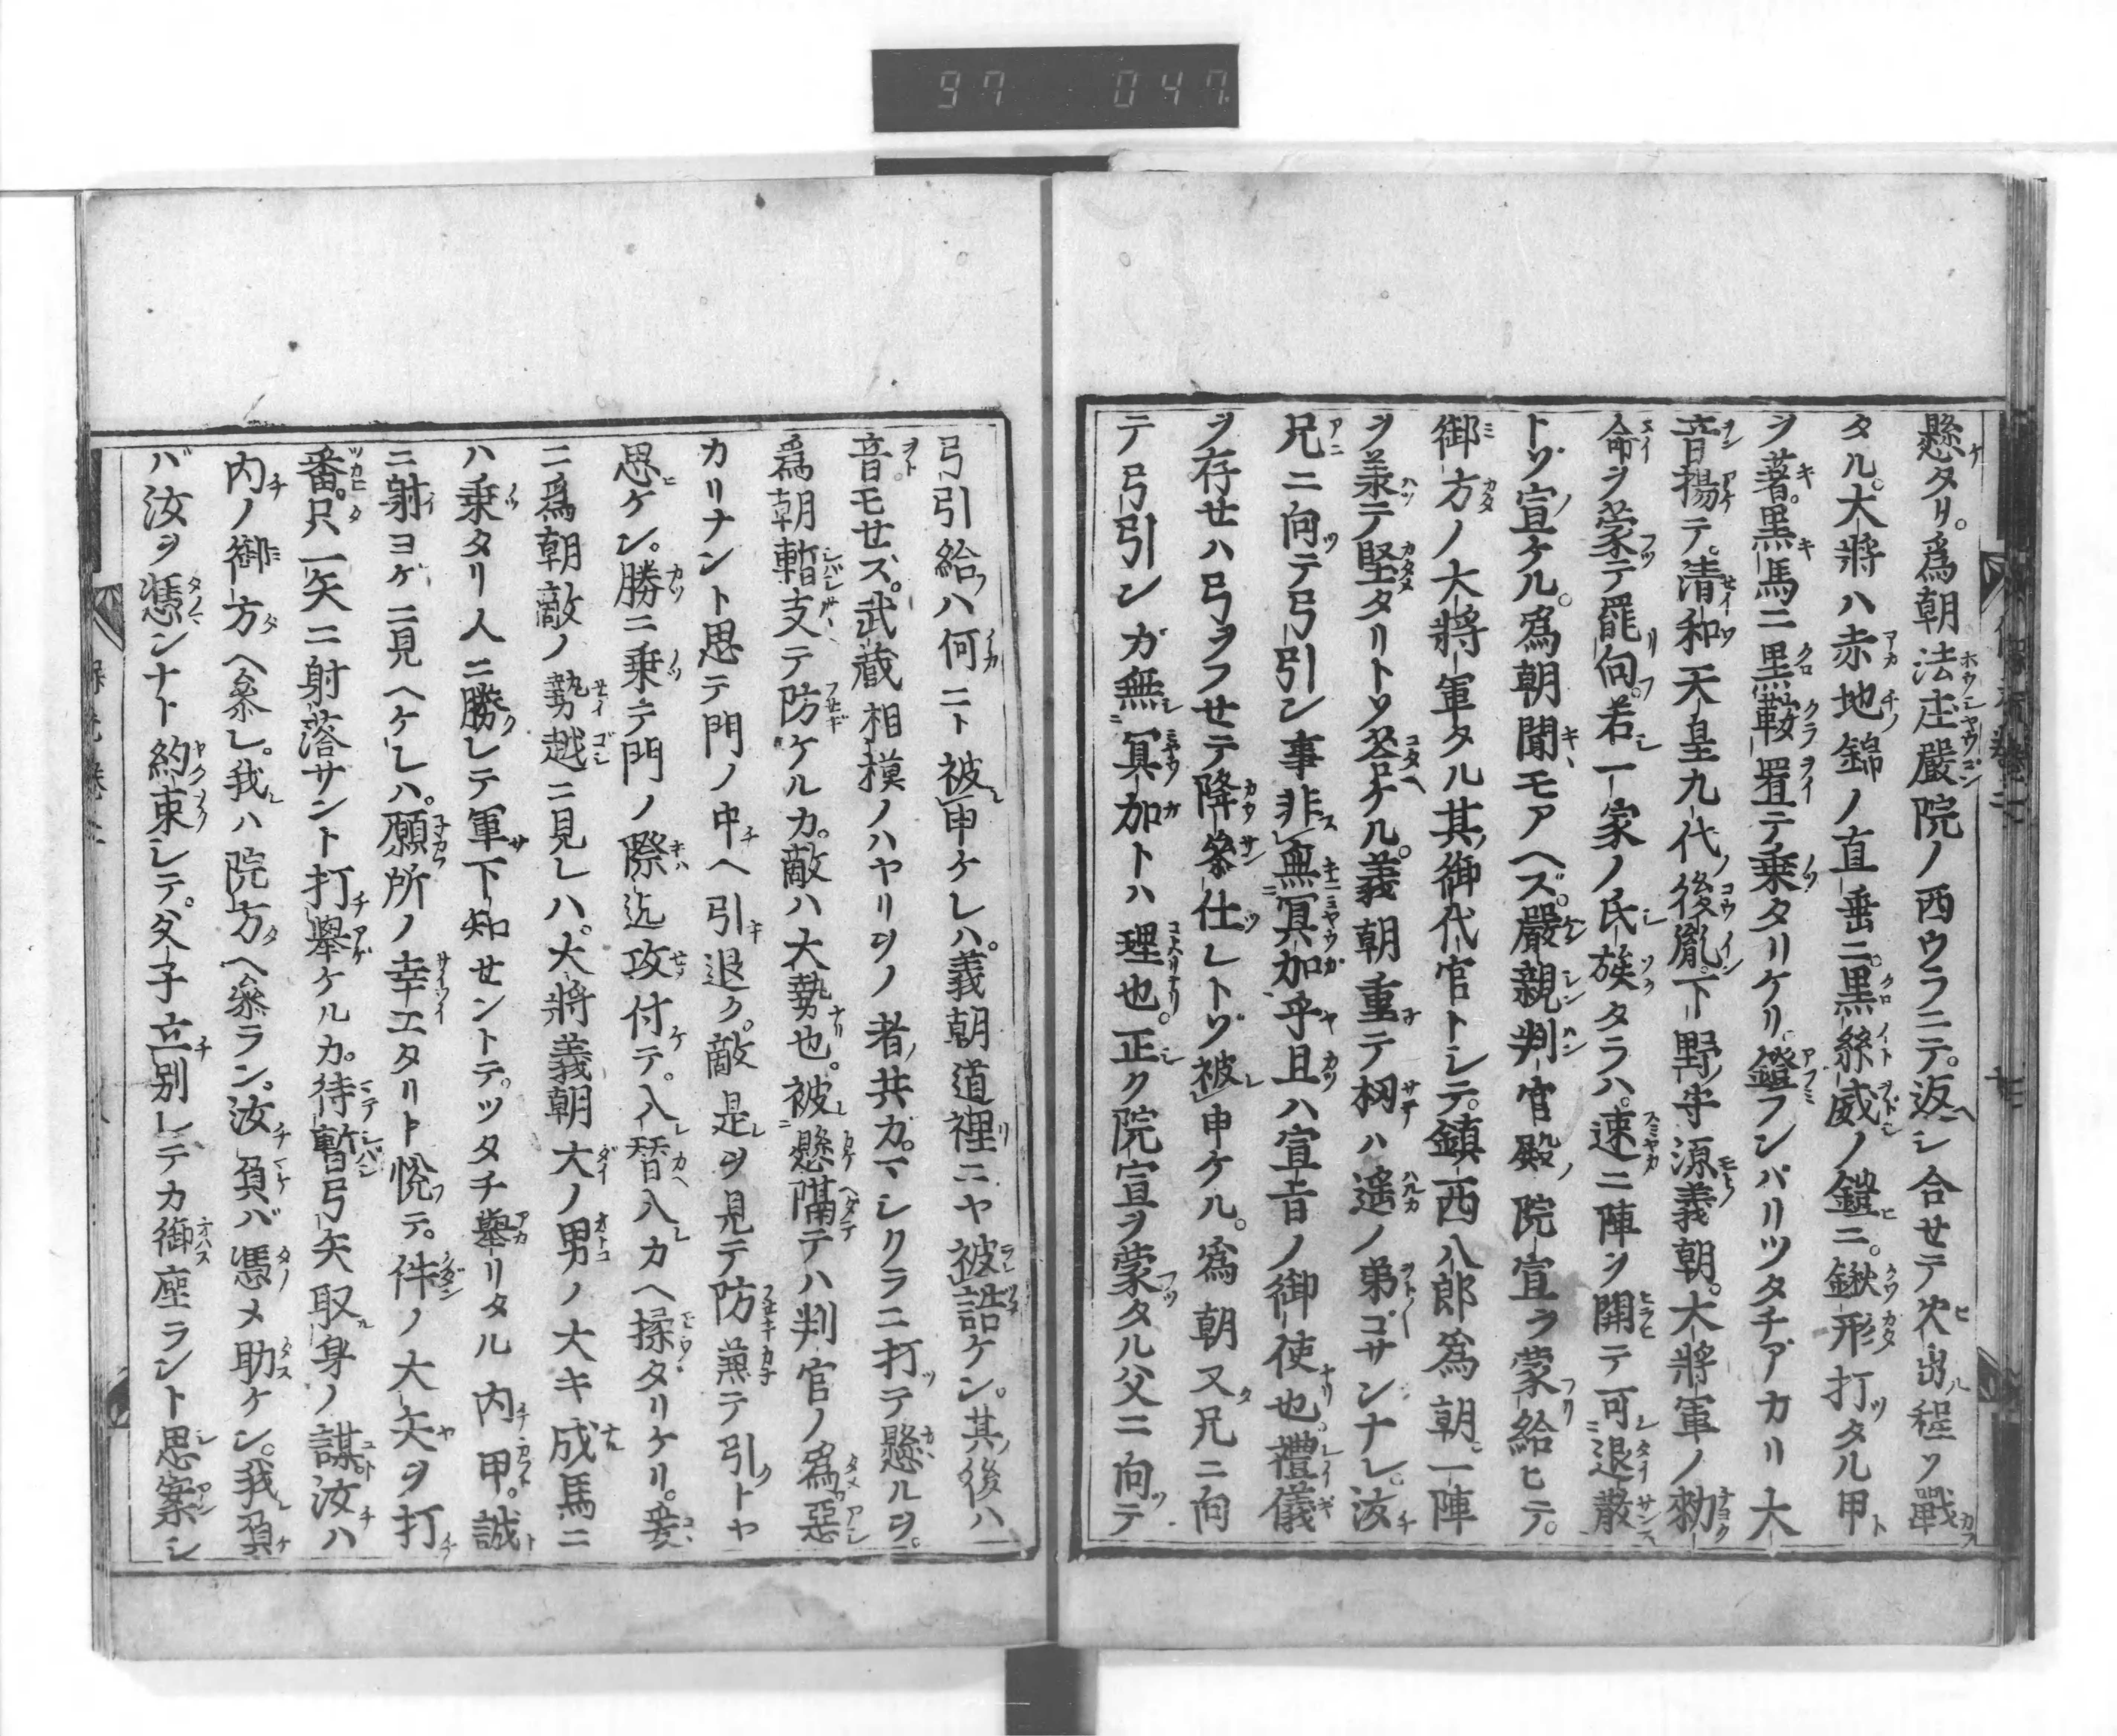 97 047
懸タリ。爲朝法莊嚴院ノ西ウラニテ。返シ合セテ火出程ソ戰
タル。大將ハ赤地錦ノ直垂ニ。黒絲威ノ鎧ニ。鍬形打タル甲
ヲ著。黒馬ニ黒鞍置テ乗タリケリ。鐙フンバリツタチアカリ大
音揚テ。清和天皇九代後胤。下野守源義朝。大將軍ノ勅
命ヲ蒙テ罷向。若一家ノ氏族タラハ。速ニ陣ヲ開テ可退散
トゾ宣ケル。爲朝聞モアヘズ。嚴親判官殿院宣ヲ蒙給ヒテ。
御方ノ大將軍タル其御代官トシテ。鎮西八郎爲朝。一陣
ヲ羕テ堅タリトソ荅ケル。義朝重テ扨ハ遥ノ弟ゴサンナレ。汝
兄ニ向テ弓引ン事非無冥加乎且ハ宣旨ノ御使也。禮儀
ヲ存セハ弓ヲフセテ降參仕レトゾ被申ケル。爲朝又兄ニ向
テ弓引ンガ無冥加トハ理也。正ク院宣ヲ蒙タル父ニ向テ
弓引給ハ何ニト被申ケレハ。義朝道理ニヤ被詰ケン。其後ハ
音モセス。武蔵相模ノハヤリヲノ者共カ。マシクラニ打テ懸ルヲ。
爲朝暫支テ防ケルカ。敵ハ大勢也。被懸隔テハ判官ノ爲惡
カリナント思テ門ノ中ヘ引退ク。敵是ヲ見テ防兼テ引トヤ
思ケン。勝ニ乗テ門ノ際迄攻付テ。入替入カヘ揉タリケリ。爰
ニ爲朝敵ノ勢越ニ見レハ。大將義朝大ノ男ノ大キ成馬ニ
ハ乗タリ人ニ勝レテ軍下知セントテ。ツタチ擧リタル内甲。誠
ニ射ヨゲニ見ヘケレハ。願所ノ幸エタリト悦テ。件ノ大矢ヲ打
番。只一矢ニ射落サント打擧ケルカ。待暫弓矢取身ノ謀汝ハ
内ノ御方ヘ參レ。我ハ院方ヘ參ラン。汝負バ憑メ助ケン。我負
バ汝ヲ憑ンナト約束シテ。父子立別レテカ御座ラント思案シ